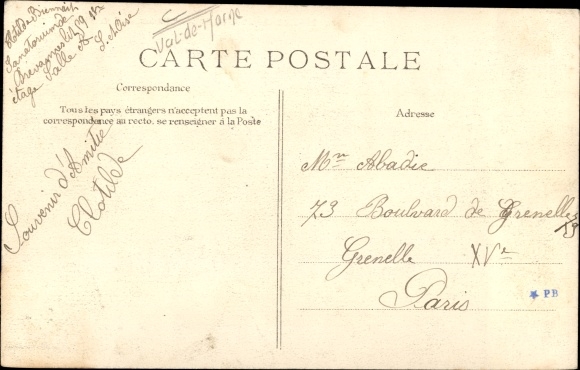 Clotilde
Sanatorium de
Brevannes lit 59 1er
étage Salle
Val-de-Marne
CARTE POSTALE
Correspondance
Tous les pays étrangers n'acceptent pas la
correspondance au recto. se renseigner à la Poste
Souvenir d'Amitié
Clotilde
Adresse
Mme Abadie
73 Boulvard de Grenelle
Grenelle XVe
Paris
PB